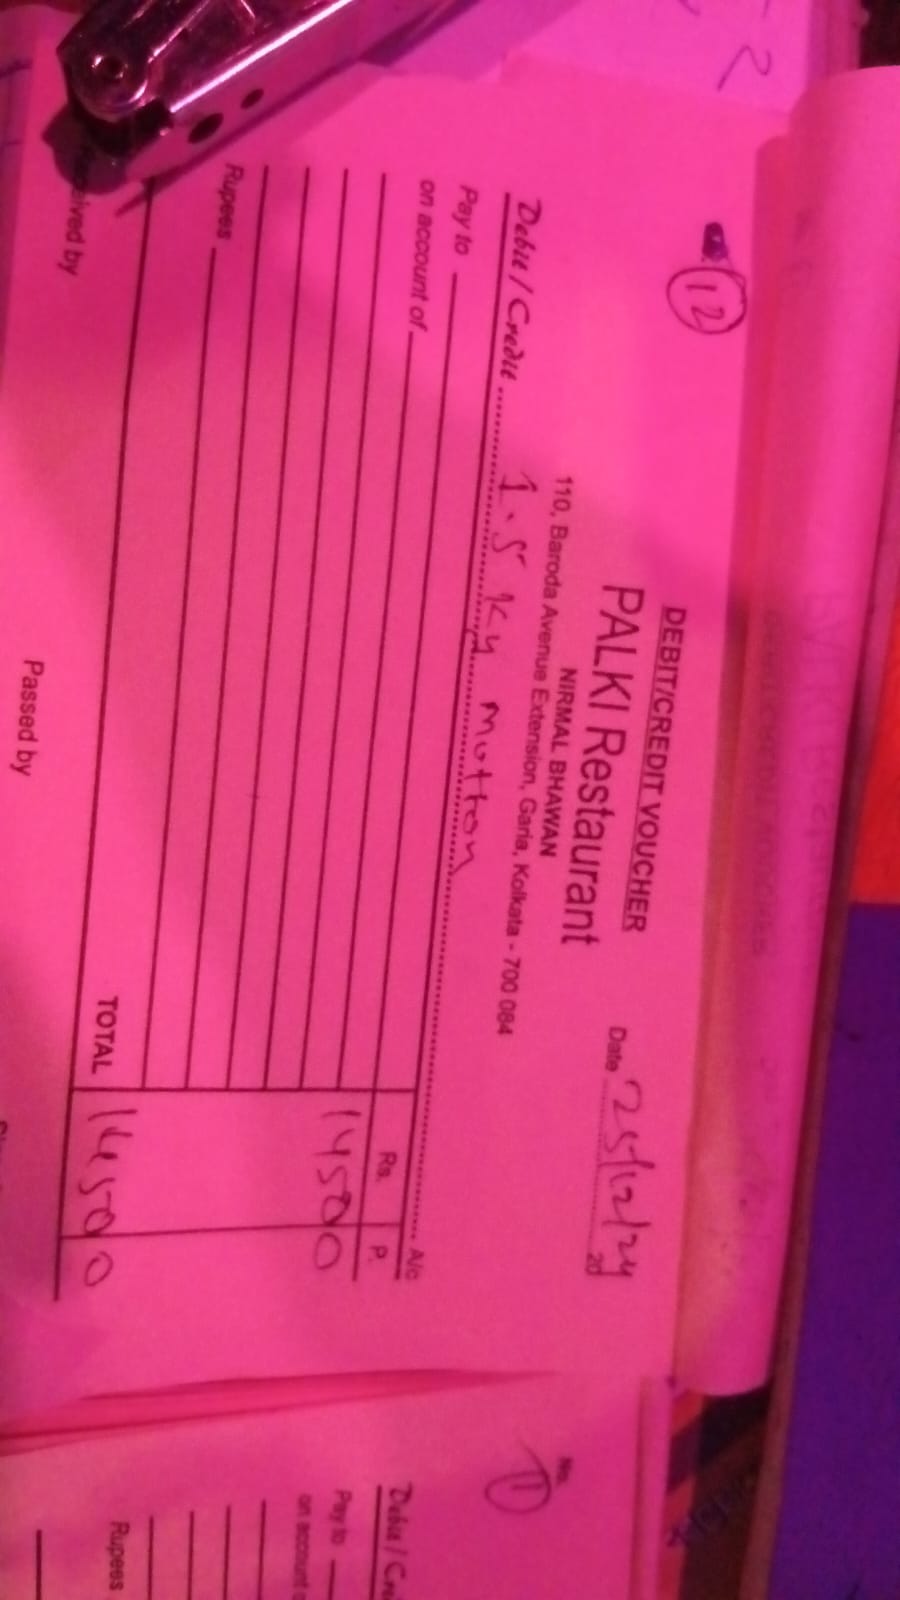 12
DEBIT/CREDIT VOUCHER
PALKI Restaurant
NIRMAL BHAWAN
110, Baroda Avenue Extension, Garia, Kolkata - 700 084
Date 25/12/24 20
Debit / Credit 1.5 kg mutton A/c
Pay to
on account of
Rs. P.
1450 0
Rupees
TOTAL 1450 0
Passed by
No. 11
Pay to
on account
Rupees